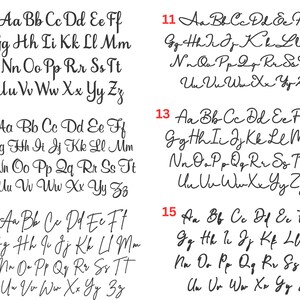 Aa Bb Cc Dd Ee Ff
Gg Hh Ii Kk Ll Mm
Nn Oo Pp Rr Ss Tt
Uu Vv Ww Xx Yy Zz
11
Aa Bb Cc Dd Ee Ff
Gg Hh Ii Jj Kk Ll
Nn Oo Pp Qq Rr Ss
Uu Vv Ww Xx Yy
Aa Bb Cc Dd Ee Ff
Gg Hh Ii Jj Kk Ll Mm
Nn Oo Pp Qq Rr Ss Tt
Uu Vv Ww Xx Yy Zz
13
Aa Bb Cc Dd Ee
Gg Hh Ii Jj Kk Ll
Nn Oo Pp Qq Rr Ss
Uu Vv Ww Xx Yy
Aa Bb Cc Dd Ee Ff
Gg Hh Ii Jj Kk Ll Mm
Nn Oo Pp Qq Rr Ss Tt
Uu Vv Ww Xx Yy Zz
15
Aa Bb Cc Dd Ee
Gg Hh Ii Jj Kk Ll
Nn Oo Pp Qq Rr Ss
Uu Vv Ww Xx Yy